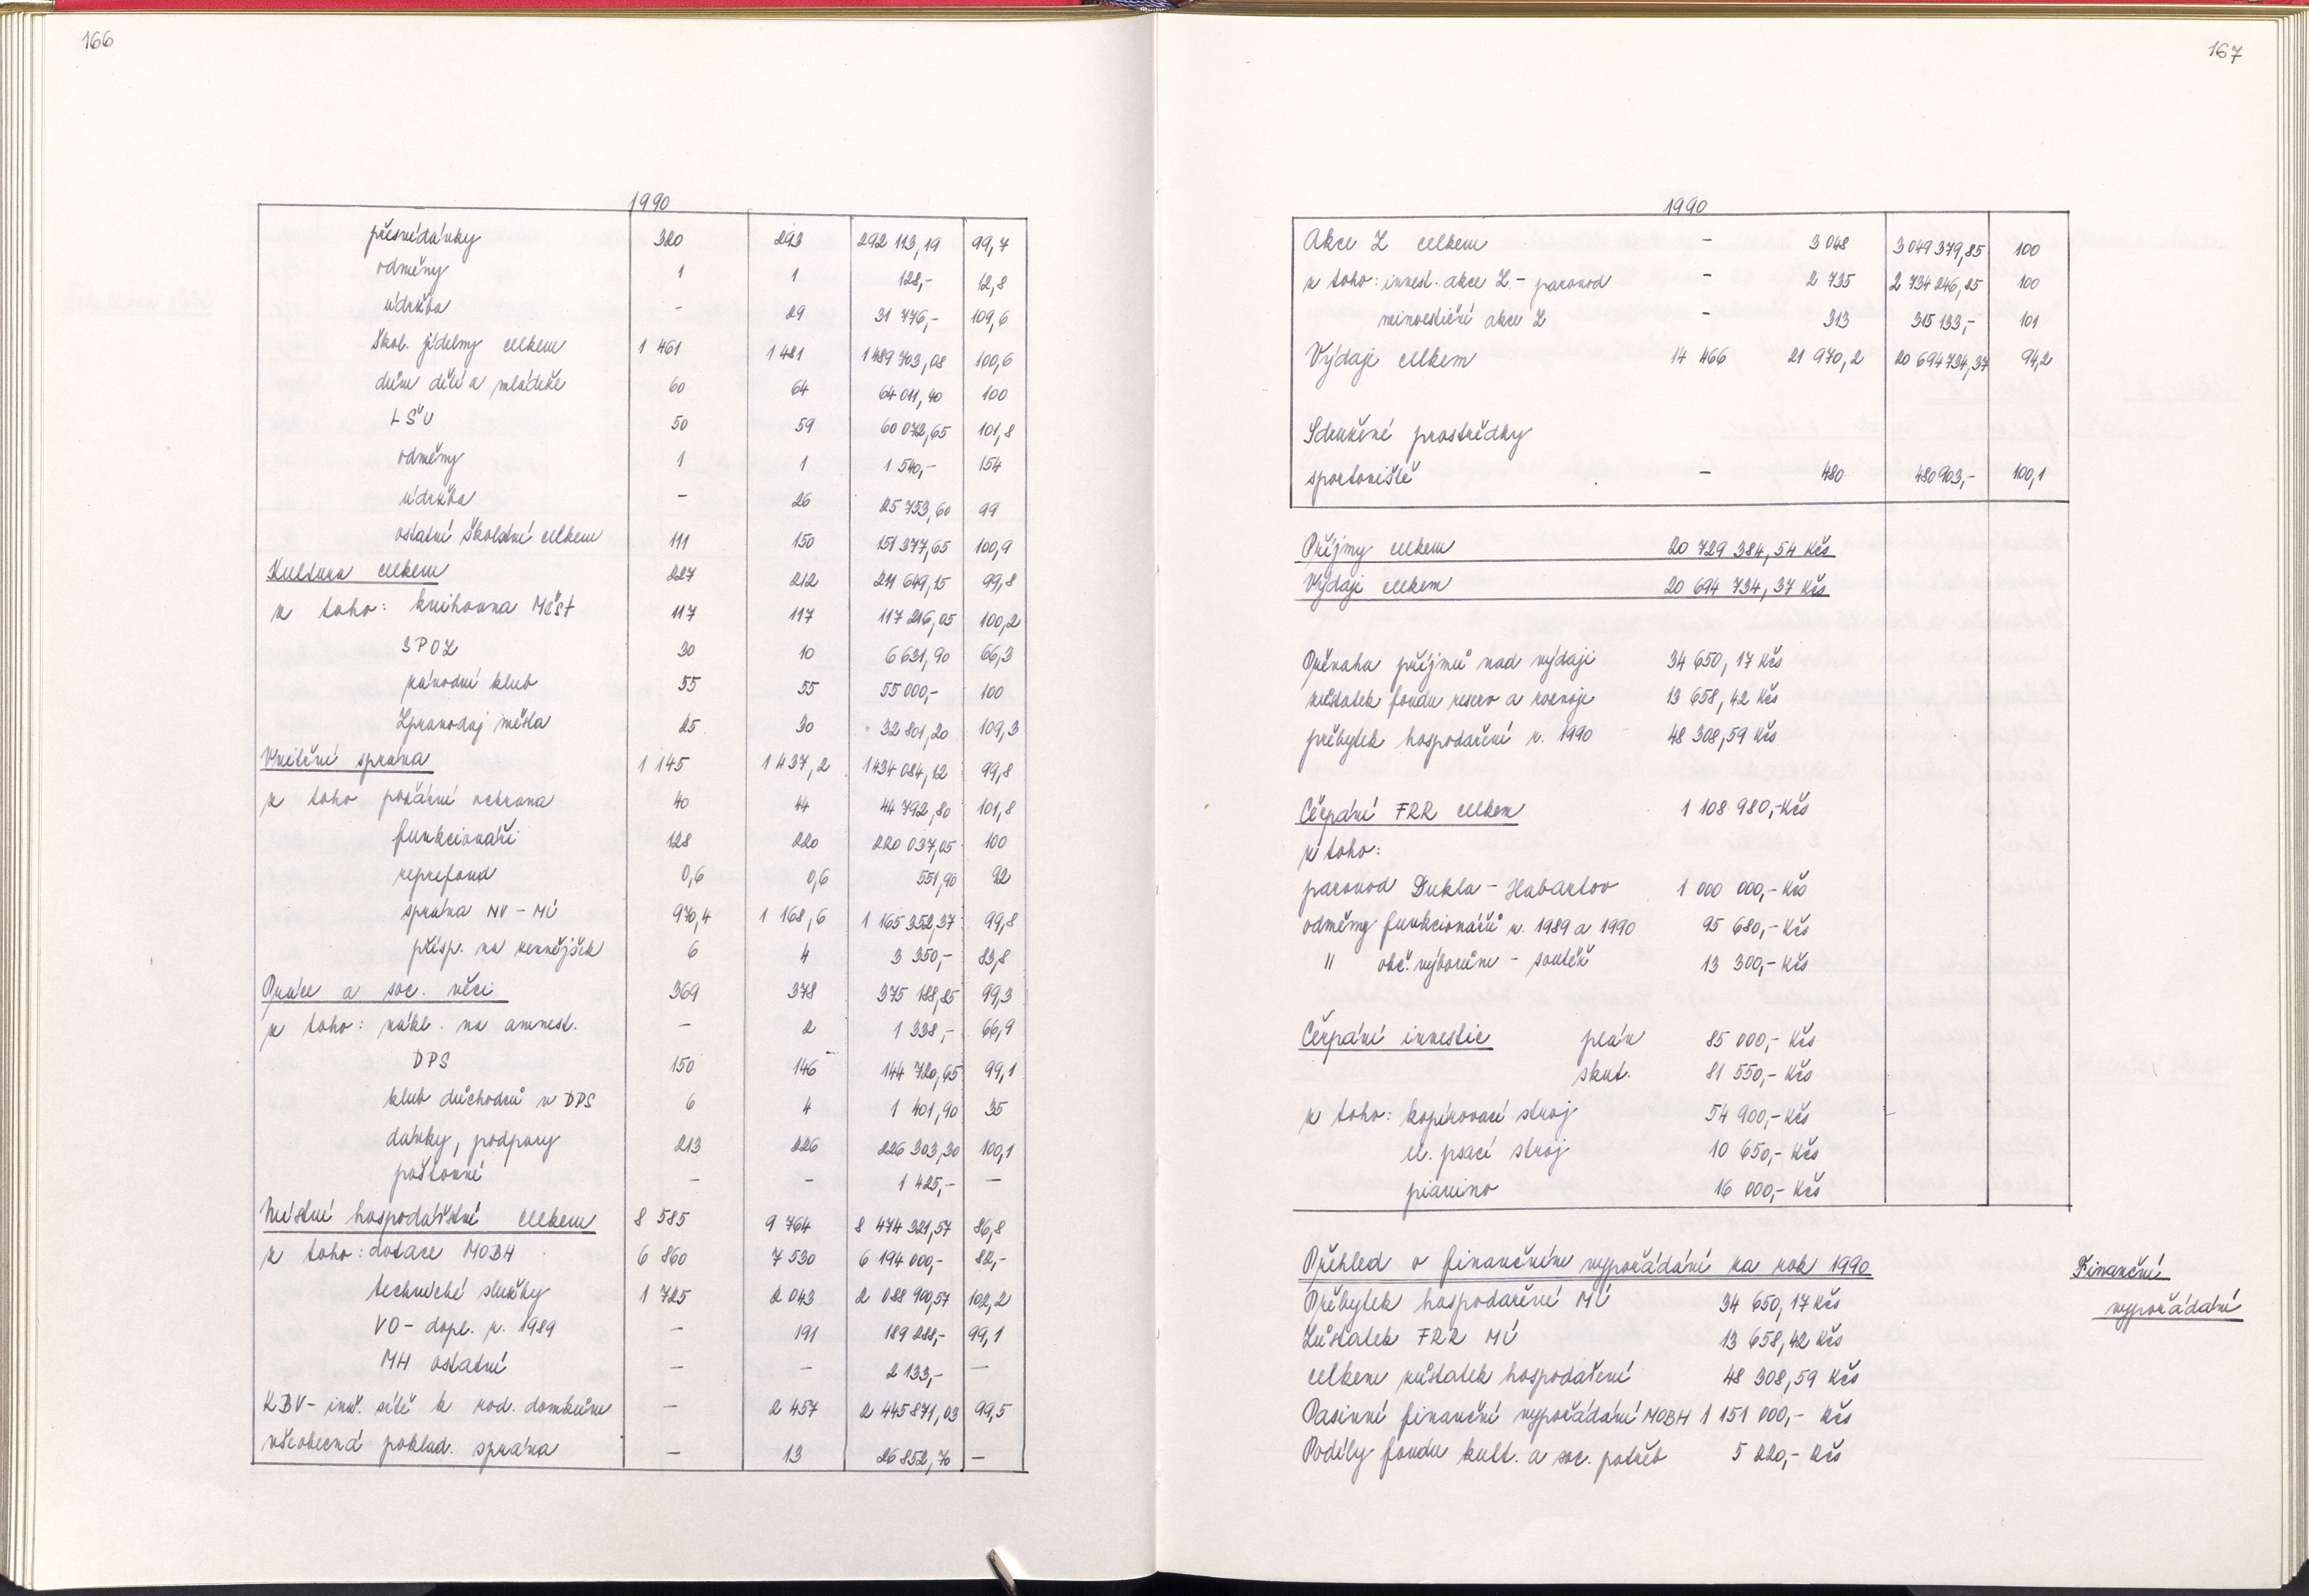 166
1990
přesnídávky 320 293 292 113,19 99,7
odměny 1 1 128,- 12,8
údržba - 29 31 776,- 109,6
škol. jídelny celkem 1 461 1 481 1 489 703,08 100,6
dům dětí a mládeže 60 64 64 011,40 100
LŠU 50 59 60 072,65 101,8
odměny 1 1 1 540,- 154
údržba - 26 25 753,60 99
ostatní školství celkem 111 150 151 377,65 100,9
Kultura celkem 227 212 211 649,15 99,8
z toho: knihovna MěšT 117 117 117 216,05 100,2
SPOZ 30 10 6 631,90 66,3
závodní klub 55 55 55 000,- 100
Zpravodaj města 25 30 32 801,20 109,3
Vnitřní správa 1 145 1 437,2 1 434 084,12 99,8
z toho požární ochrana 40 44 44 792,80 101,8
funkcionáři 128 220 220 037,05 100
reprefond 0,6 0,6 551,90 92
správa NV - MÚ 970,4 1 168,6 1 165 352,37 99,8
přísp. na veřejšek 6 4 3 350,- 83,8
Práce a soc. věci 369 378 375 188,85 99,3
z toho: nákl. na amnest. - 2 1 338,- 66,9
DPS 150 146 144 720,65 99,1
klub důchodců v DPS 6 4 1 401,90 35
dávky, podpory 213 226 226 303,30 100,1
poštovné - - 1 425,- -
Místní hospodářství celkem 8 585 9 764 8 474 321,57 86,8
z toho: dotace MOBH 6 860 7 530 6 194 000,- 82,-
technické služby 1 725 2 043 2 088 900,57 102,2
VO - dopl. r. 1989 - 191 189 288,- 99,1
MH ostatní - - 2 133,- -
KBV - inž. sítě k rod. domkům - 2 457 2 445 871,03 99,5
všeobecná poklad. správa - 13 26 852,70 -
167
1990
Akce Z celkem - 3 048 3 049 379,85 100
z toho: invest. akce Z - parovod - 2 735 2 734 246,85 100
neinvestiční akce Z - 313 315 133,- 101
Výdaje celkem 14 466 21 970,2 20 694 734,37 94,2
Sdružené prostředky
sportoviště - 480 480 903,- 100,1
Příjmy celkem 20 729 384,54 Kčs
Výdaje celkem 20 694 734,37 Kčs
Převaha příjmů nad výdaji 34 650,17 Kčs
zůstatek fondu rezerv a rozvoje 13 658,42 Kčs
přebytek hospodaření r. 1990 48 308,59 Kčs
Čerpání FRR celkem 1 108 980,- Kčs
z toho:
parovod Dukla - Habartov 1 000 000,- Kčs
odměny funkcionářů r. 1989 a 1990 95 680,- Kčs
" obč. výborům - soutěž 13 300,- Kčs
Čerpání investic plán 85 000,- Kčs
skut. 81 550,- Kčs
z toho: kopírovací stroj 54 900,- Kčs
el. psací stroj 10 650,- Kčs
pianino 16 000,- Kčs
Přehled o finančním vypořádání za rok 1990
Finanční
vypořádání
Přebytek hospodaření MÚ 34 650,17 Kčs
Zůstatek FRR MÚ 13 658,42 Kčs
celkem zůstatek hospodaření 48 308,59 Kčs
Pasivní finanční vypořádání MOBH 1 151 000,- Kčs
Podíly fondu kult. a soc. potřeb 5 220,- Kčs